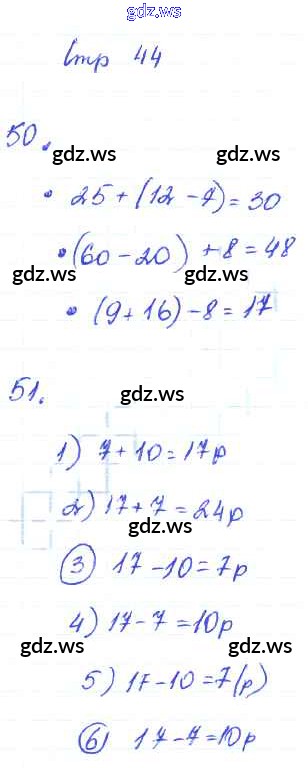 gdz.ws
Стр 44
50.
gdz.ws
• 25 + (12 - 7) = 30
• (60 - 20) + 8 = 48
gdz.ws gdz.ws
• (9 + 16) - 8 = 17
51.
gdz.ws
1) 7 + 10 = 17р
gdz.ws gdz.ws
2) 17 + 7 = 24р
3 17 - 10 = 7р
gdz.ws
4) 17 - 7 = 10р
gdz.ws gdz.ws
5) 17 - 10 = 7(р)
6 17 - 7 = 10р
gdz.ws